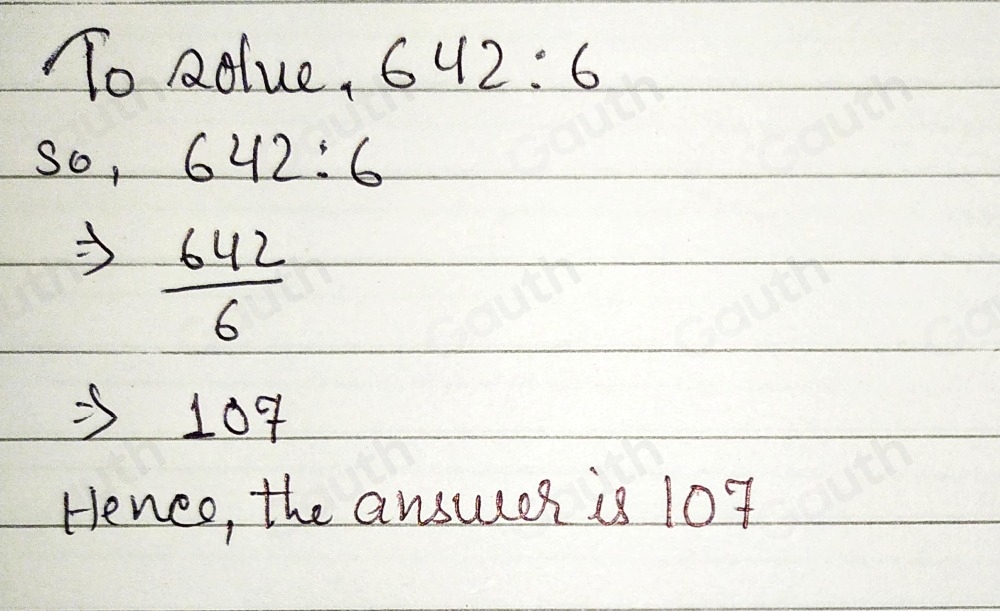 To solve, 642:6
so, 642:6
⇒ 642
6
⇒ 107
Hence, the answer is 107
Gauth